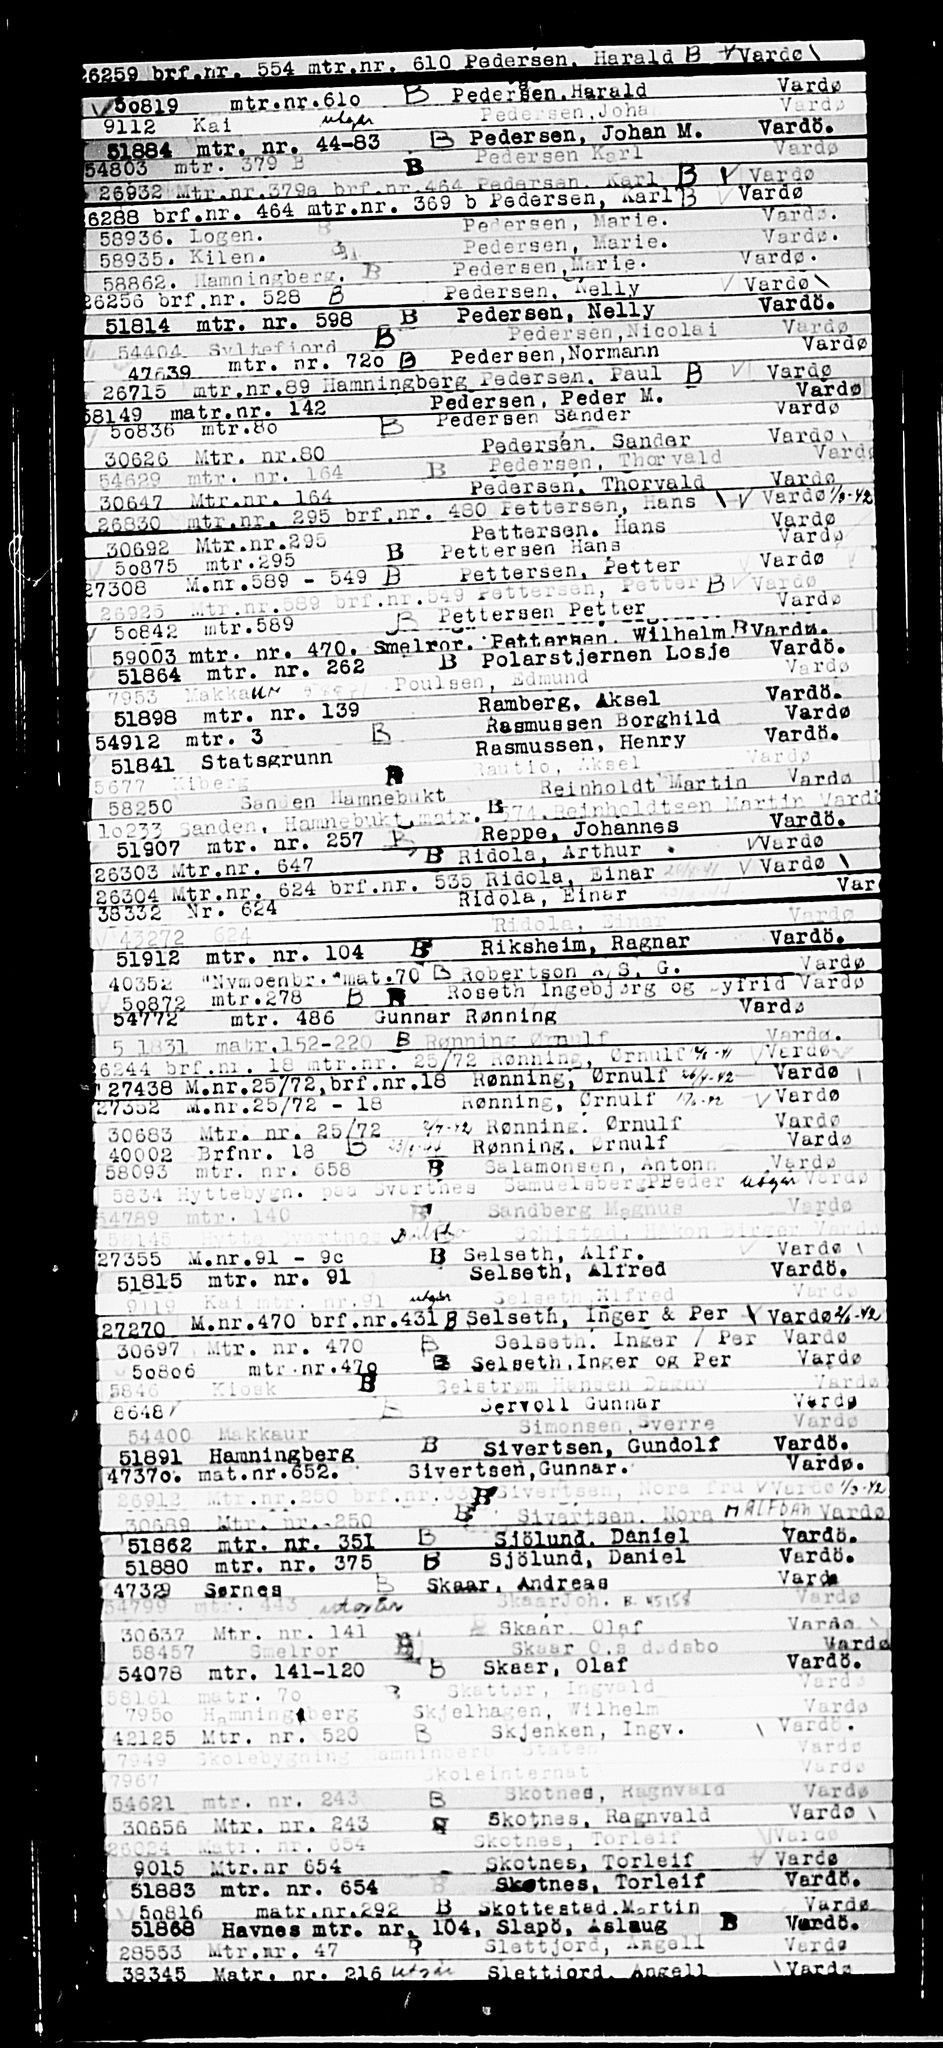 26259 brf.nr. 554 mtr.nr. 610 Pedersen, Harald B Vardø
50819 mtr.nr.610 B Pedersen,Harald Vardø
9112 Kai utgår Pedersen, Joha Vardø
51884 mtr. nr. 44-83 B Pedersen, Johan M. Vardö.
54803 mtr. 379 B B Pedersen Karl Vardø
26932 Mtr.nr.379a brf.nr.464 Pedersen. Karl B V Vardø
6288 brf.nr. 464 mtr.nr. 369 b Pedersen, Karl B V Vardø
58936. Logen. B Pedersen, Marie. Vardø.
58935. Kilen. Pedersen, Marie. Vardø.
58862. Hamningberg. B Pedersen,Marie. Vardø.
26256 brf.nr. 528 B Pedersen, Nelly V Vardø
51814 mtr. nr. 598 B Pedersen, Nelly Vardö.
54404 Syltefjord B Pedersen,Nicolai Vardø
47639 mtr. nr. 720 B Pedersen,Normann Vardø
26715 mtr.nr.89 Hamningberg Pedersen. Paul B V Vardø
58149 matr.nr. 142 Pedersen, Peder M. Vardø
50836 mtr.80 B Pedersen Sander Vardø
30626 Mtr. nr.80 Pedersen. Sander Vardø
54629 mtr. nr. 164 B Pedersen, Thorvald Vardø
30647 Mtr.nr. 164 Pedersen, Thorvald Vardø
26830 mtr.nr. 295 brf.nr. 480 Pettersen, Hans V Vardø 1/9-42
30692 Mtr.nr.295 Pettersen. Hans Vardø
50875 mtr.295 B Pettersen Hans Vardø
27308 M.nr.589 - 549 B Pettersen, Petter V Vardø
26925 Mtr.nr.589 brf.nr.549 Pettersen, Petter B V Vardø
50842 mtr.589 B Pettersen Petter Vardø
59003 mtr. nr. 470. Smelror. Pettersen. Wilhelm B Vardø.
51864 mtr. nr. 262 B Polarstjernen Losje Vardö.
7953 Makkaur Poulsen, Edmund Vardø
51898 mtr. nr. 139 Ramberg, Aksel Vardö.
54912 mtr. 3 B Rasmussen Borghild Vardø
51841 Statsgrunn Rasmussen, Henry Vardö.
5677 Kiberg Rautio, Aksel Vardø
58250 Sanden Hamnebukt Reinholdt Martin Vardø
10233 Sanden, Hamnebukt,matr. B 574.Reinholdtsen Martin Vardö
51907 mtr. nr. 257 B Reppe, Johannes Vardö.
26303 Mtr.nr. 647 B Ridola, Arthur V Vardø
26304 Mtr.nr. 624 brf.nr. 535 Ridola, Einar V Vardø
38332 Nr. 624 Ridola, Einar Var
43272 624 Ridola, Einar Vardø
51912 mtr. nr. 104 B Riksheim, Ragnar Vardö.
40352 "Nymoenbr."mat.70 B Robertson A/S. G. Vardø
50872 mtr.278 B Roseth Ingebjørg og yfrid Vardø
54772 mtr. 486 Gunnar Rønning Vardø
5 1831 matr.152-220 B Rønning Ørnulf Vardø.
26244 brf.nr. 18 mtr.nr. 25/72 Rønning, Ørnulf V Vardø
27438 M.nr.25/72,brf.nr.18 Rønning, Ørnulf Vardø
27352 M.nr.25/72 - 18 Rønning, Ørnulf V Vardø
30683 Mtr. nr. 25/72 Rønning. Ørnulf Vardø
40002 Brfnr. 18 B Rønning. Ørnulf Vardø
58093 mtr. nr. 658 B Salamonsen, Antonn Vardø
5834 Hyttebygn. paa Svartnes SamuelsbergPPeder utgår Vardø
54789 mtr. 140 B Sandberg Magnus Vardø
27355 M.nr.91 - 90 B Selseth, Alfr. V Vardø
51815 mtr. nr. 91 Selseth, Alfred Vardö.
9119 Kai mtr. nr.91 utgår Selseth,Alfred Vardø
27270 M.nr.470 brf.nr.431 B Selseth, Inger & Per V Vardø 2/6-42
30697 Mtr. nr. 470 B Selseth. Inger / Per Vardø
50806 mtr.nr.470 B Selseth,Inger og Per Vardø
5846 Kiosk B Selstrøm Hansen Dagny Vardø
8648 Servoll Gunnar Vardø
54400 Makkaur Simonsen,Sverre Vardø
51891 Hamningberg B Sivertsen, Gundolf Vardö.
47370. mat.nr.652. Sivertsen,Gunnar. Vardø.
26912 Mtr.nr.250 brf.nr.330 B Sivertsen, Nora fru V Vardø 1/9-42
30689 Mtr. nr. 250 B Sivertsen. Nora HALFDAN Vardø
51862 mtr. nr. 351 B Sjölund. Daniel Vardö.
51880 mtr. nr. 375 B Sjölund, Daniel Vardö.
47329 Sørnes B Skaar, Andreas Vardø
54799 mtr. 443 SkaarJoh. B. 45158 Vardø
30637 Mtr. nr. 141 Skaar. Olaf Vardø
58457 Smelror B Skaar O.s dødsbo Vardø
54078 mtr. 141-120 B Skaar, Olaf Vardö.
58161 matr. 70 B Skattør, Ingvald Vardø
7950 Hamningberg Skjelhagen, Wilhelm Vardø
42125 Mtr. nr. 520 B Skjenken, Ingv. Vardö.
7949 Skolebygning Hamninberg Staten Vardø
7967 Skoleinternat Vardø
54621 mtr. nr. 243 B Skotnes, Ragnvald Vardø
30656 Mtr. nr. 243 Skotnes, Ragnvald Vardø
26024 Matr. nr. 654 Skotnes, Torleif V Vardø
9015 Mtr.nr 654 Skotnes, Torleif Vardø
51883 mtr. nr. 654 B Skotnes, Torleif Vardö.
50816 matr.nr.292 B Skottestad.Martin Vardø
51868 Havnes mtr. nr. 104, Slapö, Aslaug B Vardö.
28553 Mtr.nr. 47 Slettjord, Angell Vardø
38345 Matr. nr. 216 utgår Slettjord. Angell Vardø